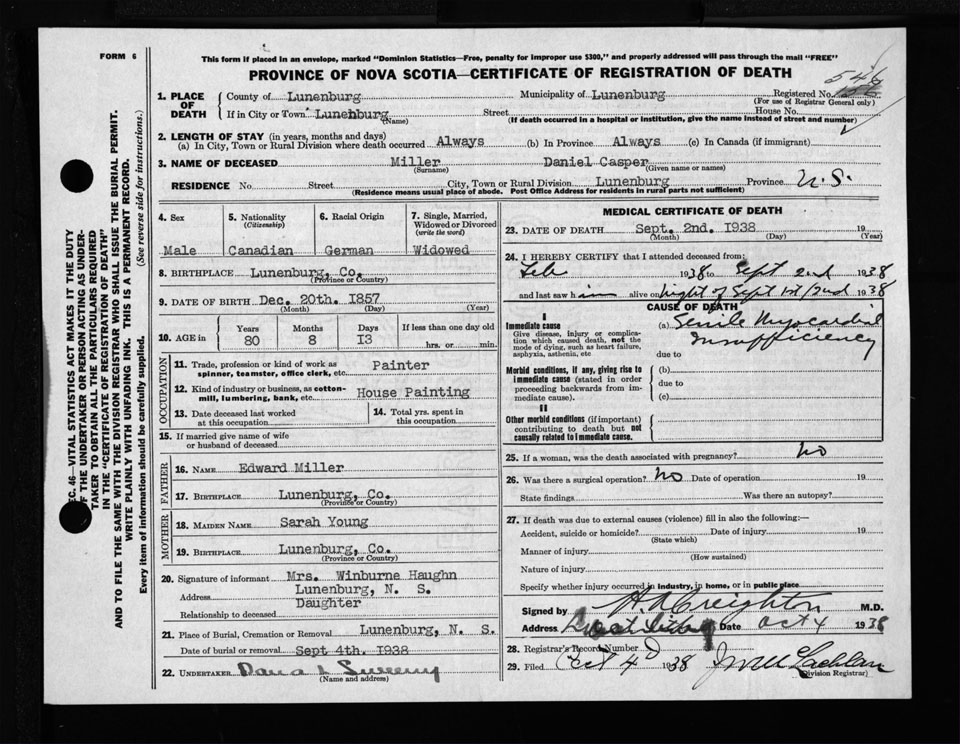 FORM 6
This form if placed in an envelope, marked "Dominion Statistics—Free, penalty for improper use $300," and properly addressed will pass through the mail "FREE"
PROVINCE OF NOVA SCOTIA—CERTIFICATE OF REGISTRATION OF DEATH
1. PLACE OF DEATH
County of Lunenburg Municipality of Lunenburg Registered No.
(For use of Registrar General only)
If in City or Town Lunenburg Street House No.
(Name) (If death occurred in a hospital or institution, give the name instead of street and number)
2. LENGTH OF STAY (in years, months and days)
(a) In City, Town or Rural Division where death occurred Always (b) In Province Always (c) In Canada (if immigrant)
3. NAME OF DECEASED Miller Daniel Casper
(Surname) (Given name or names)
RESIDENCE No. Street City, Town or Rural Division Lunenburg Province N.S.
(Residence means usual place of abode. Post Office Address for residents in rural parts not sufficient)
4. Sex 5. Nationality (Citizenship) 6. Racial Origin 7. Single, Married, Widowed or Divorced (write the word)
Male Canadian German Widowed
8. BIRTHPLACE Lunenburg, Co.
(Province or Country)
9. DATE OF BIRTH Dec. 20th. 1857
(Month) (Day) (Year)
10. AGE in Years Months Days If less than one day old
80 8 13 hrs. or min.
OCCUPATION
11. Trade, profession or kind of work as spinner, teamster, office clerk, etc. Painter
12. Kind of industry or business, as cotton-mill, lumbering, bank, etc. House Painting
13. Date deceased last worked at this occupation
14. Total yrs. spent in this occupation
15. If married give name of wife or husband of deceased
FATHER
16. NAME Edward Miller
17. BIRTHPLACE Lunenburg, Co.
(Province or Country)
MOTHER
18. MAIDEN NAME Sarah Young
19. BIRTHPLACE Lunenburg, Co.
(Province or Country)
20. Signature of informant Mrs. Winburne Haughn
Address Lunenburg, N. S.
Relationship to deceased Daughter
21. Place of Burial, Cremation or Removal Lunenburg, N. S.
Date of burial or removal Sept 4th. 1938
22. UNDERTAKER Sweeny
(Name and address)
MEDICAL CERTIFICATE OF DEATH
23. DATE OF DEATH Sept. 2nd. 1938 19
(Month) (Day) (Year)
24. I HEREBY CERTIFY that I attended deceased from:
Feb 1938 to Sept 2nd 1938
and last saw him alive on night of Sept 1st/2nd 1938
CAUSE OF DEATH
I
Immediate cause
Give disease, injury or complication which caused death, not the mode of dying, such as heart failure, asphyxia, asthenia, etc
(a) Senile Myocardial
Insufficiency
due to
Morbid conditions, if any, giving rise to immediate cause (stated in order proceeding backwards from immediate cause).
(b)
due to
(c)
II
Other morbid conditions (if important) contributing to death but not causally related to immediate cause.
25. If a woman, was the death associated with pregnancy? No
26. Was there a surgical operation? No Date of operation 19
State findings Was there an autopsy?
27. If death was due to external causes (violence) fill in also the following:—
Accident, suicide or homicide? Date of injury 19
(State which)
Manner of injury
(How sustained)
Nature of injury
Specify whether injury occurred in industry, in home, or in public place
Signed by H. A. Creighton M.D.
Address Date Oct 4 1938
28. Registrar's Record Number
29. Filed Oct 4 1938
(Division Registrar)
SEC. 46—VITAL STATISTICS ACT MAKES IT THE DUTY
OF THE UNDERTAKER OR PERSON ACTING AS UNDER-
TAKER TO OBTAIN ALL THE PARTICULARS REQUIRED
IN THE "CERTIFICATE OF REGISTRATION OF DEATH"
AND TO FILE THE SAME WITH THE DIVISION REGISTRAR WHO SHALL ISSUE THE BURIAL PERMIT.
WRITE PLAINLY WITH UNFADING INK. THIS IS A PERMANENT RECORD.
Every item of information should be carefully supplied. (See reverse side for instructions.)